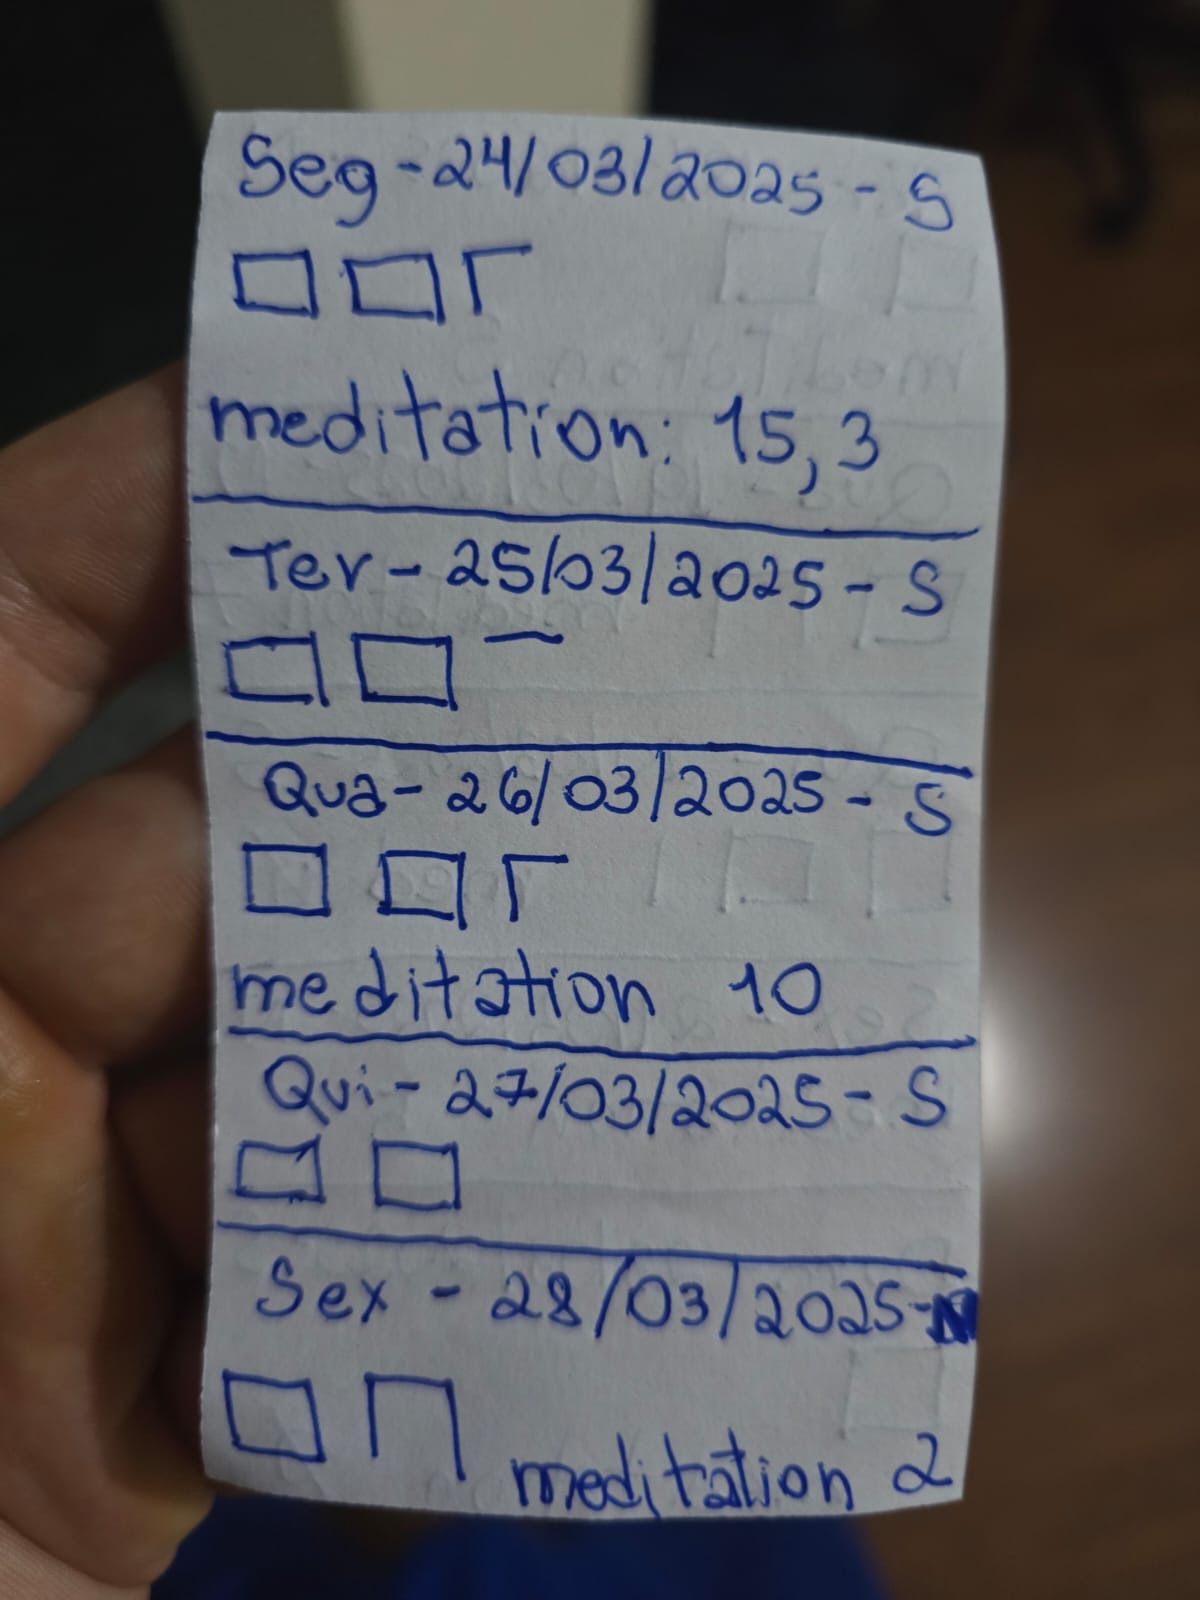 Seg - 24/03/2025 - S
meditation: 15, 3
Ter - 25/03/2025 - S
Qua - 26/03/2025 - S
meditation 10
Qui - 27/03/2025 - S
Sex - 28/03/2025 - N
meditation 2